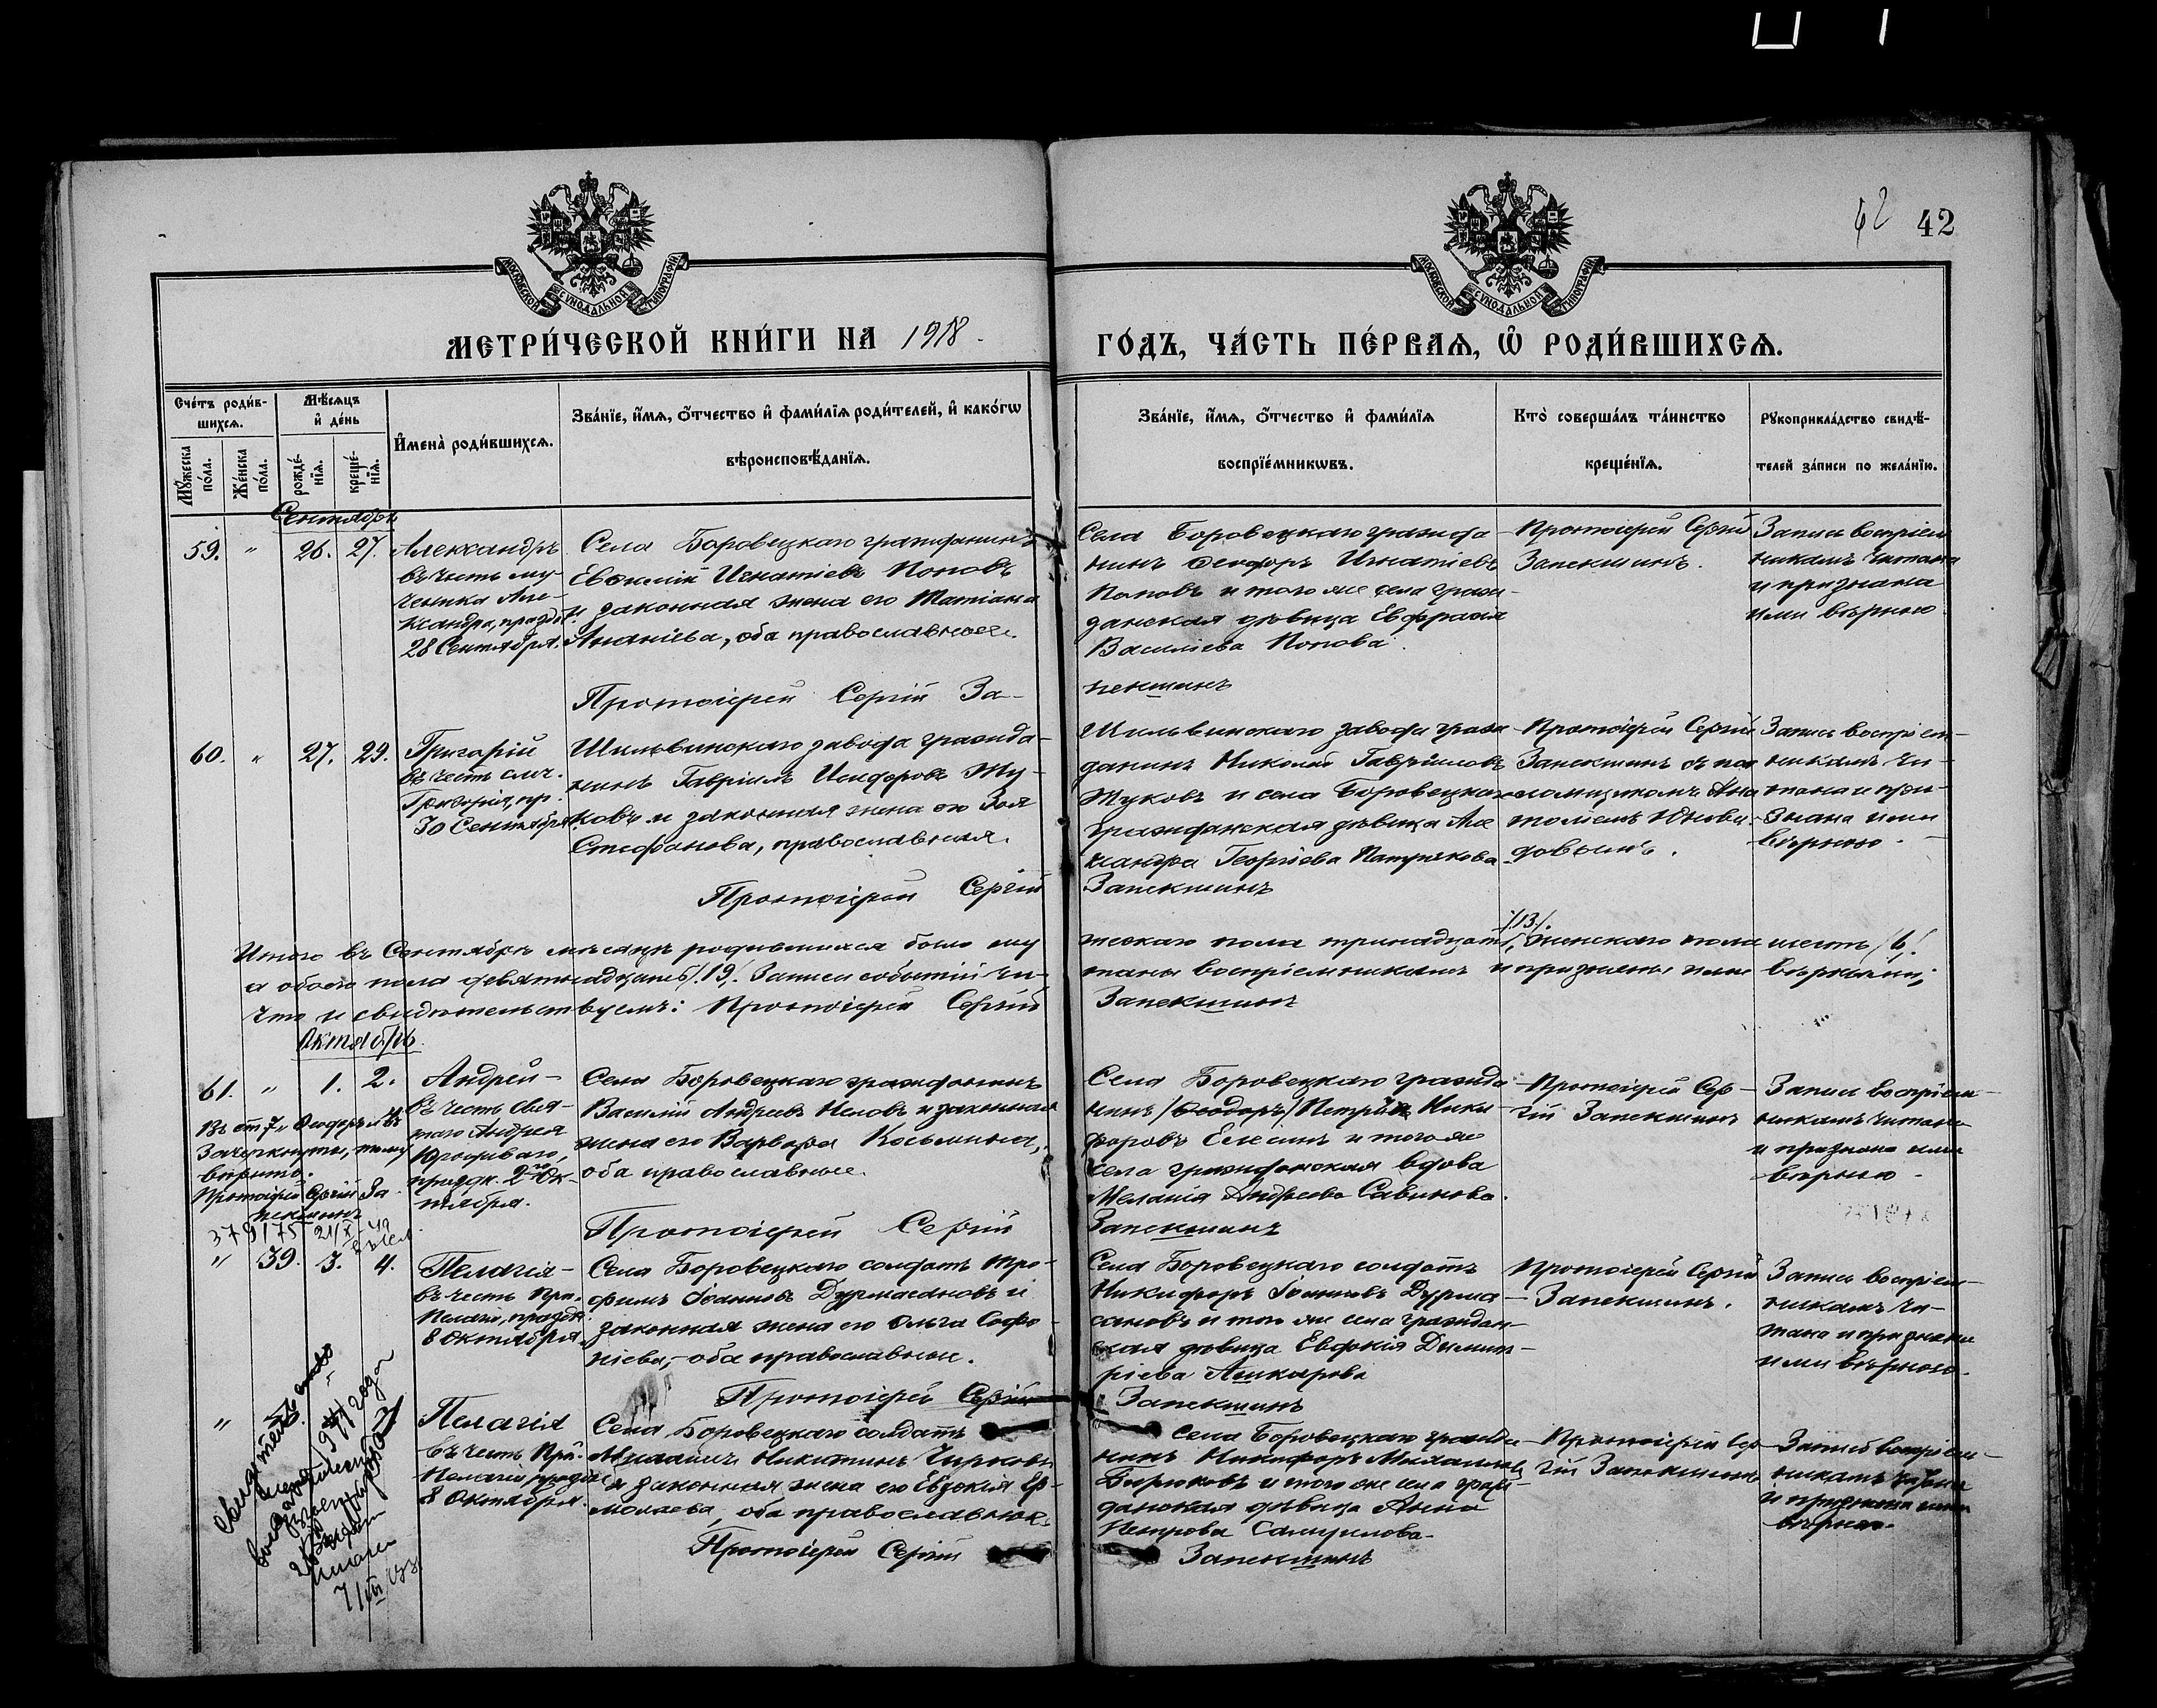 МОСКОВСКОЙ СѴНОДАЛЬНОЙ ТИПОГРАФІИ
МОСКОВСКОЙ СѴНОДАЛЬНОЙ ТИПОГРАФІИ
42 42
МЕТРИ́ЧЕСКОЙ КНИ́ГИ НА 1918.
ГО́ДЪ, ЧА́СТЬ ПЕ́РВАѦ, Ѽ РОДИ́ВШИХСѦ.
Сче́тъ роди́в-
шихсѧ.
Мꙋ́жеска по́ла.
Же́нска по́ла.
Мѣ́сѧцъ и҆ де́нь
рожде́-нїѧ.
креще́-нїѧ.
И҆мена̀ роди́вшихсѧ.
Зва́нїе, и҆́мѧ, ѻ҆́тчество и҆ фами́лїѧ роди́телей, и҆ како́гѡ
вѣроисповѣ́данїѧ.
Зва́нїе, и҆́мѧ, ѻ҆́тчество и҆ фами́лїѧ
воспрїе́мникѡвъ.
Кто̀ соверша́лъ та́инство
креще́нїѧ.
Рꙋкоприкла́дство свидѣ́-
телей за́писи по жела́нїю.
Сентябрь
59. " 26. 27.
Александръ
въ честь му-
ченика Але-
ксандра, праздн.
28 Сентября.
Села Боровецкаго гражданинъ
Евѳимій Игнатіевъ Поповъ
и законная жена его Татіана
Ананіева, оба православные.
Протоіерей Сергій За-
Села Боровецкаго гражда-
нинъ Ѳеодоръ Игнатіевъ
Поповъ и того же села граж-
данская дѣвица Евфрасія
Василіева Попова.
пекшинъ
Протоіерей Сергій
Запекшинъ.
Запись воспріем
никамъ читана
и признана
ими вѣрною
60. " 27. 29.
Григорій
въ честь смч.
Григорія, пр.
30 Сентября.
Шильвинскаго завода гражда-
нинъ Гавріилъ Исидоровъ Жу-
ковъ и законная жена его Зоя
Стефанова, православная.
Протоіерей Сергій
Шильвинскаго завода граж-
данинъ Николай Гавріиловъ
Жуковъ и села Боровецкаго
гражданская дѣвица Але
ксандра Георгіева
Запекшинъ
Протоіерей Сергій
Запекшинъ съ пса
ломщикомъ Ана
толіемъ
Запись воспріем-
никамъ чи-
тана и при-
знана ими
вѣрною.
Итого въ Сентябрѣ мѣсяцѣ родившихся было му
жескаго пола тринадцать /13/, женскаго пола шесть /6/.
а обоего пола девятнадцать /19/. Записи событій чи-
таны воспріемникамъ и признаны ими вѣрными,
что и свидѣтельствуемъ: Протоіерей Сергій
Запекшинъ
Октябрь.
61. " 1. 2.
Въ ст. 7 "Ѳеодоръ" и "й"
Зачеркнуто, тому
вѣрить.
Протоіерей Сергій За
пекшинъ
Андрей-
въ честь свя-
таго Андрея
Юродиваго,
праздн. 2го Ок-
тября.
Села Боровецкаго гражданинъ
Василій Андреевъ и законная
жена его Варвара Косьмина,
оба православные.
Протоіерей Сергій
Села Боровецкаго гражда
нинъ /Ѳеодоръ/ Петръ Ники-
форовъ Елкинъ и того же
села гражданская вдова
Меланія Андреева Савинова.
Запекшинъ
Протоіерей Сер-
гій Запекшинъ
Запись воспріем-
никамъ читана
и признана ими
вѣрною.
" 39. 3. 4.
Пелагія-
въ честь Прп.
Пелагіи, праздн.
8 Октября.
Села Боровецкаго солдатъ Тро-
фимъ Іоанновъ Дурмасановъ и
законная жена его Ольга Софо-
ніева, оба православные.
Протоіерей Сергій
Села Боровецкаго солдатъ
Никифоръ Іоанновъ Дурма-
сановъ и того же села граждан-
ская дѣвица Евдокія Димит-
ріева Ашкарова
Запекшинъ
Протоіерей Сергій
Запекшинъ.
Запись воспріем-
никамъ чи-
тана и признана
ими вѣрною.
"
Пелагія
въ честь Прп.
Пелагіи, праздн.
8 Октября.
Села Боровецкаго солдатъ
Михаилъ Никитинъ Чирковъ
и законная жена его Евдокія Ер-
молаева, оба православные.
Протоіерей Сергій
Села Боровецкаго гражда
нинъ Никифоръ Михаиловъ
Бирюковъ и того же села граж-
данская дѣвица Анна
Петрова Самуилова.
Запекшинъ
Протоіерей Сер-
гій Запекшинъ
Запись воспріем-
никамъ читана
и признана ими
вѣрною.